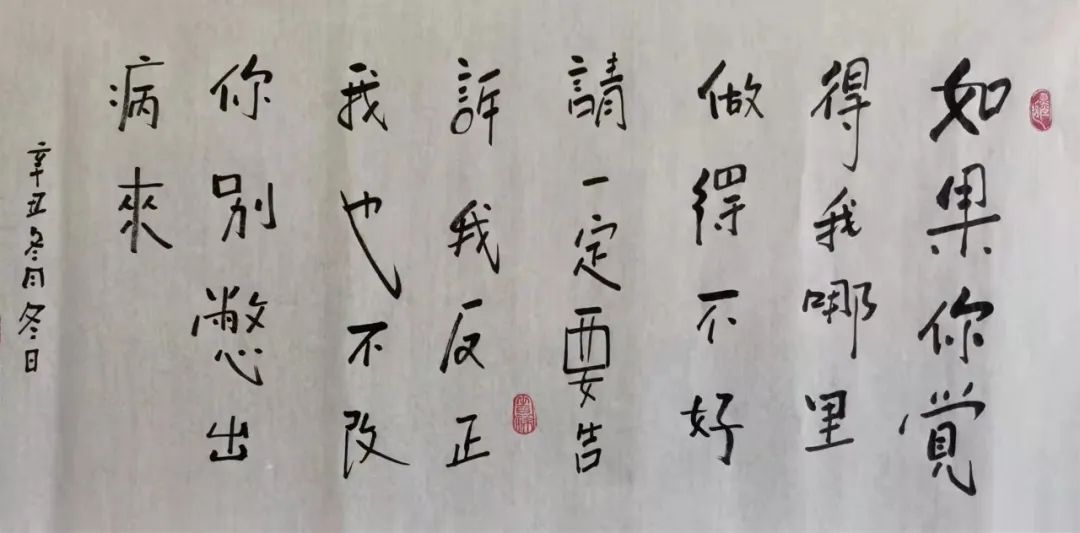 如果你覺
得我哪里
做得不好
請一定要告
訴我反正
我也不改
你別憋出
病來
辛丑冬月冬日